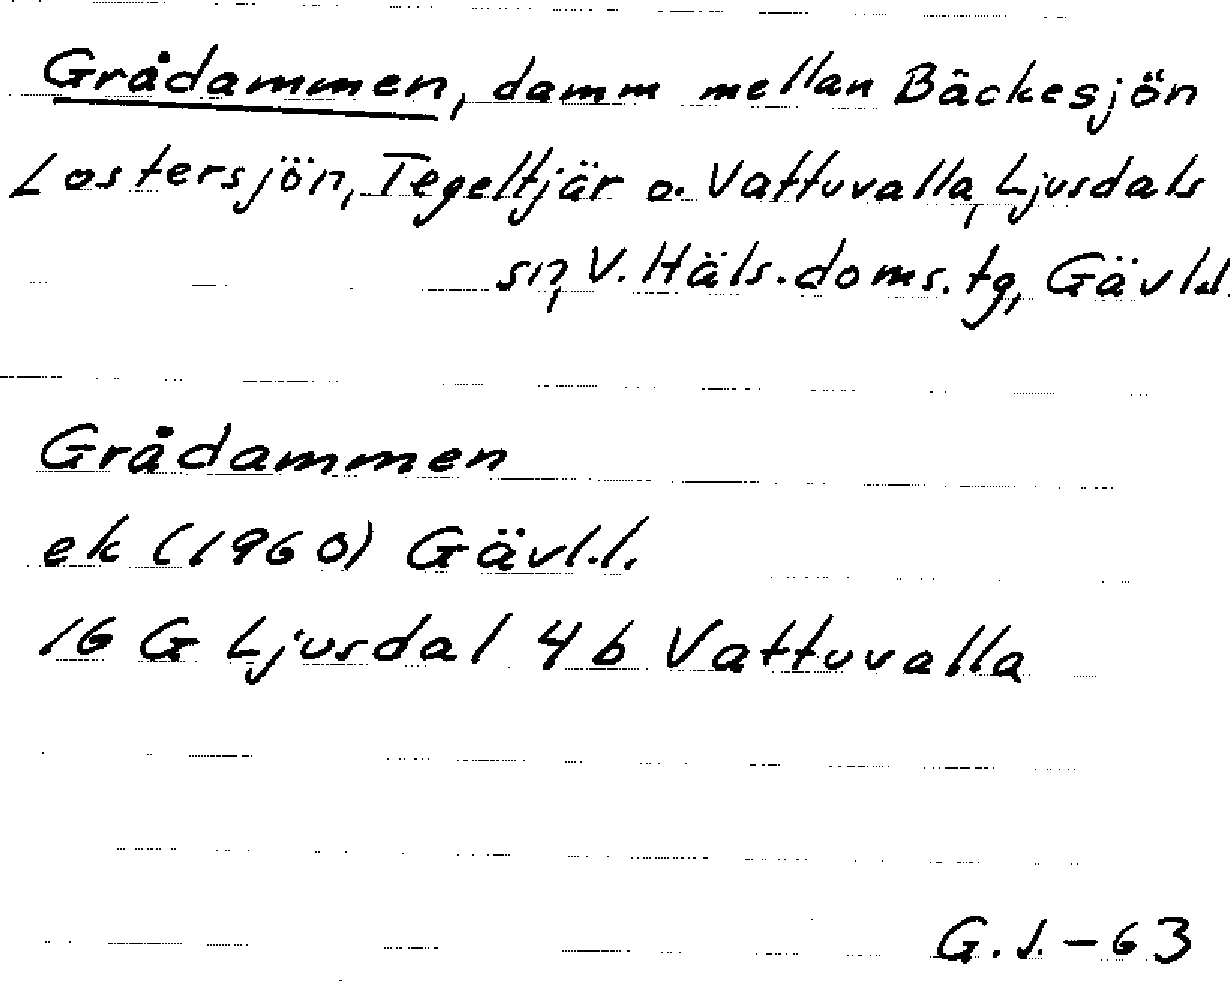 Grådammen, damm mellan Bäckesjön
Lostersjön, Tegeltjär o. Vattuvalla, Ljusdals
sn, V. Häls. doms. tg, Gävl.l.
Grådammen
ek (1960) Gävl.l.
16 G Ljusdal 4 b Vattuvalla
G.J.-63